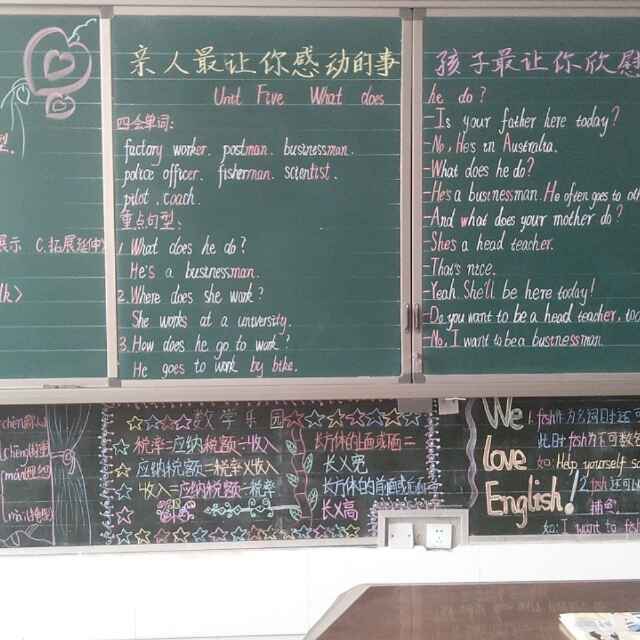 亲人最让你感动的事
Unit Five What does
四会单词:
factory worker. postman. businessman.
police officer. fisherman. scientist.
pilot. coach.
重点句型:
1. What does he do?
He's a businessman.
2. Where does she work?
She works at a university.
3. How does he go to work?
He goes to work by bike.
孩子最让你欣慰
he do?
-Is your father here today?
-No, He's in Australia.
-What does he do?
-He's a businessman. He often goes to oth
-And what does your mother do?
-She's a head teacher.
-That's nice.
-Yeah. She'll be here today!
-Do you want to be a head teacher, too
-No, I want to be a businessman
型.
展示 C.拓展延伸
数学乐园
税率=应纳税额÷收入
应纳税额=税率×收入
收入=应纳税额÷税率
长方体的上面或下面=
长×宽
长方体的前面或后面=
长×高
We
love
English!
1. fish作为名词时
此时fish为不可数
如: Help yourself
2. fish还可以
捕鱼.
如: I want to fish